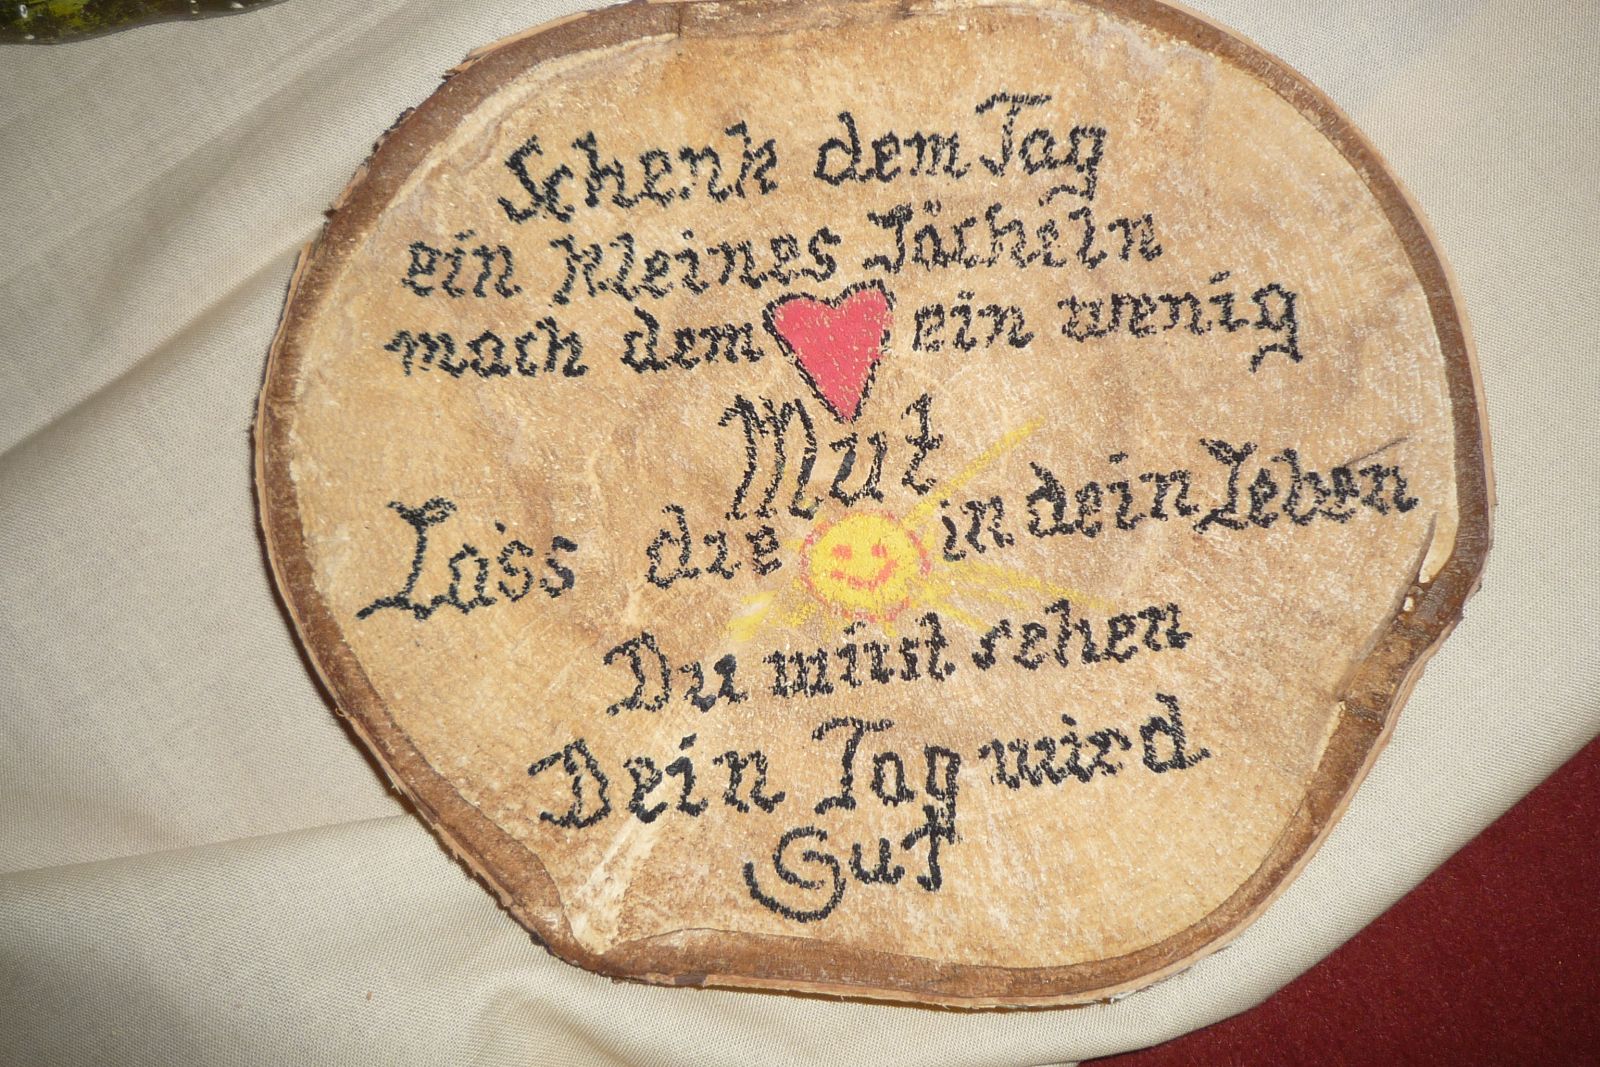 Schenk dem Tag
ein kleines Lächeln
mach dem ein wenig
Mut
Lass die in dein Leben
Du wirst sehen
Dein Tag wird
Gut